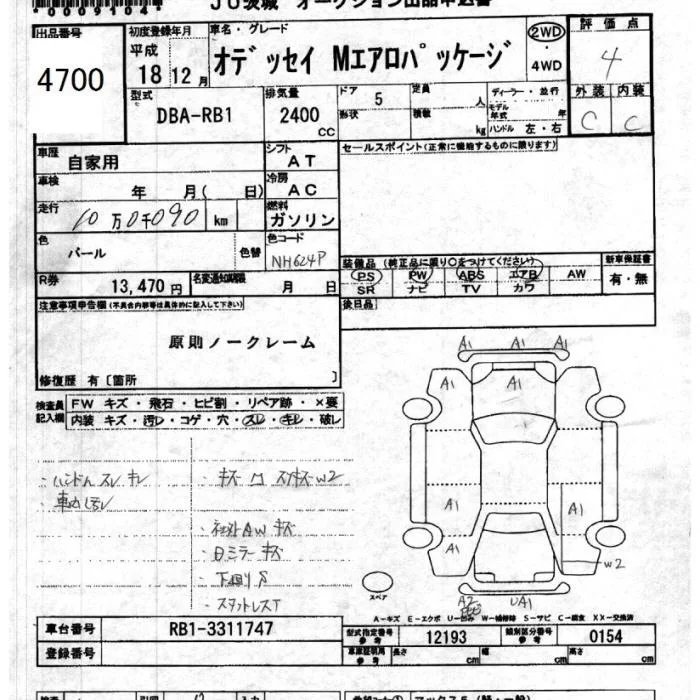 *0009104*
JU茨城 オークション出品申込書
出品番号
4700
初度登録年月
平成
18 12月
車名・グレード
オデッセイ Mエアロパッケージ
2WD
・
4WD
評価点
4
外装 内装
C C
型式
DBA-RB1
排気量
2400
cc
ドア
5
形状
定員
人
積載
kg
ディーラー・並行
モデル
年式 年
ハンドル 左・右
車歴
自家用
シフト
AT
セールスポイント(正常に機能するものに限ります)
車検
年 月( 日)
冷房
AC
走行
10万0千090 km
燃料
ガソリン
色
パール
色替
色コード
NH624P
装備品 (純正品に限り○をつけてください)
新車保証書
PS PW ABS エアB AW
SR ナビ TV カワ
有・無
R券
13,470円
名変通知期限
月 日
後日品
注意事項申告欄(不具合内容等は具体的に記入して下さい)
原則ノークレーム
修復歴 有〔箇所 〕
検査員
記入欄
FW キズ・飛石・ヒビ割・リペア跡・×要
内装 キズ・汚レ・コゲ・穴・スレ・キレ・破レ
・ハンドル スレ キレ
・車内汚レ
・キズ 凹 スリキズ W2
AW キズ
・ミラー キズ
A1 A1
A1 A1 A1
A1 A1
A1
W2
A2 UA1
スペア
A-キズ E-エクボ U-凹み W-補修跡 S-サビ C-腐食 XX-交換済
車台番号
RB1-3311747
型式指定番号
参考
12193
類別区分番号
参考
0154
登録番号
車庫証明用
参考
長さ
cm
幅
cm
高さ
cm